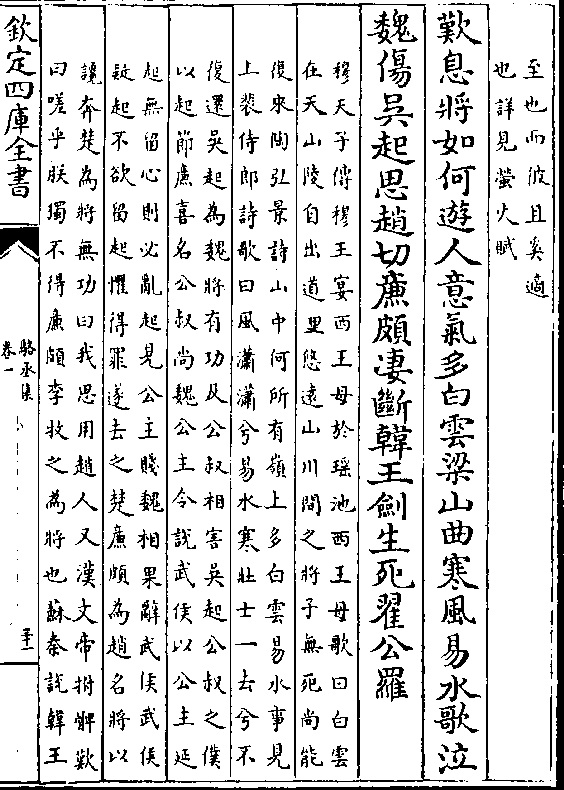 至也而彼且奚適
也詳見螢火賦
歎息將如何遊人意氣多白雲梁山曲寒風易水歌泣
魏傷吳起思趙切亷頗凄斷韓王劍生死翟公羅
穆天子傳穆王宴西王母於瑶池西王母歌曰白雲
在天山陵自出道里悠逺山川間之將子無死尚能
復來陶弘景詩山中何所有嶺上多白雲易水事見
上裴侍郎詩歌曰風瀟瀟兮易水寒壯士一去兮不
復還吳起為魏將有功及公叔相害吳起公叔之僕
以起節亷喜名公叔尚魏公主令說武侯以公主延
起無留心則必亂起見公主賤魏相果辭武侯武侯
疑起不欲留起懼得罪遂去之楚亷頗為趙名將以
讒奔楚為將無功曰我思用趙人又漢文帝拊髀歎
曰嗟乎朕獨不得亷頗李牧之為將也蘇秦說韓王
欽定四庫全書
駱丞集
卷一